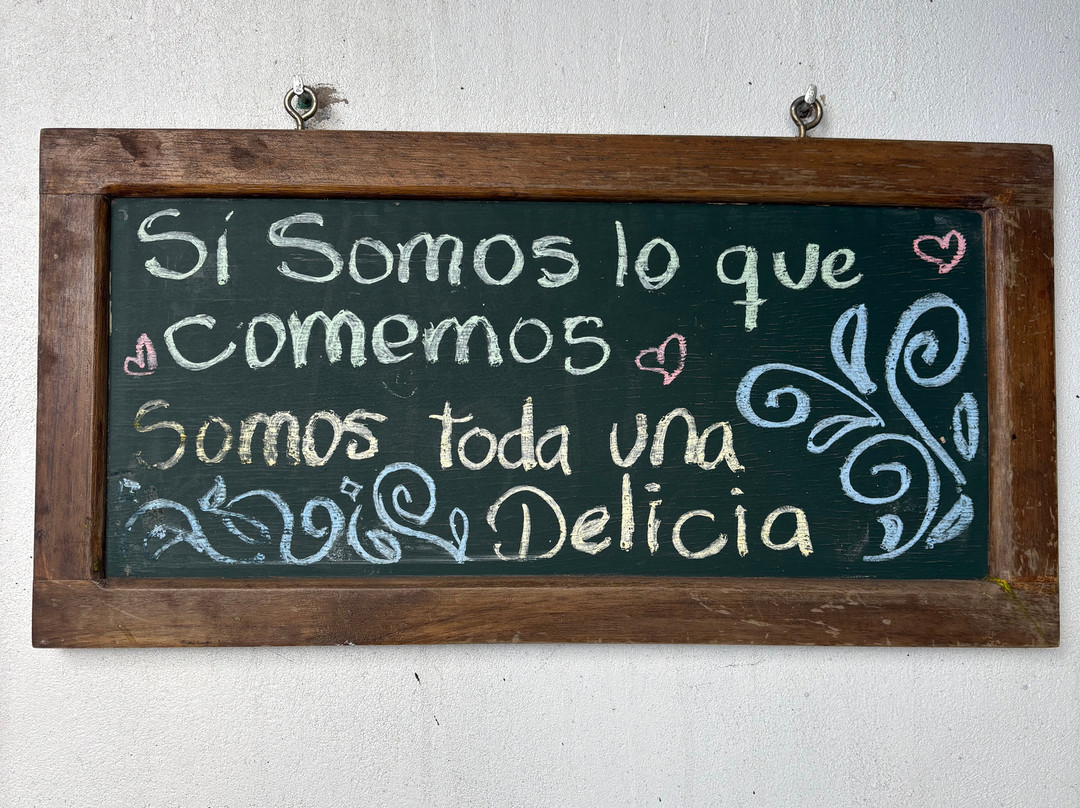 Sí Somos lo que
comemos
Somos toda una
Delicia